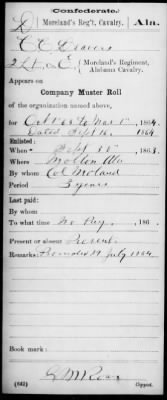 (Confederate.)
D Moreland's Reg't, Cavalry. Ala.
C C Deavers
2 Lt, Co E, Moreland's Regiment, Alabama Cavalry.
Appears on
Company Muster Roll
of the organization named above,
for Oct 1 63 to Mar 1st, 1864.
Dated Sept 16, 1864
Enlisted:
When Sept 15, 1863.
Where Molton Ala
By whom Col Moland
Period 3 years
Last paid:
By whom
To what time No Pay, 186 .
Present or absent Present
Remarks: Promoted 19 July 1864
Book mark:
(642) Copyist.